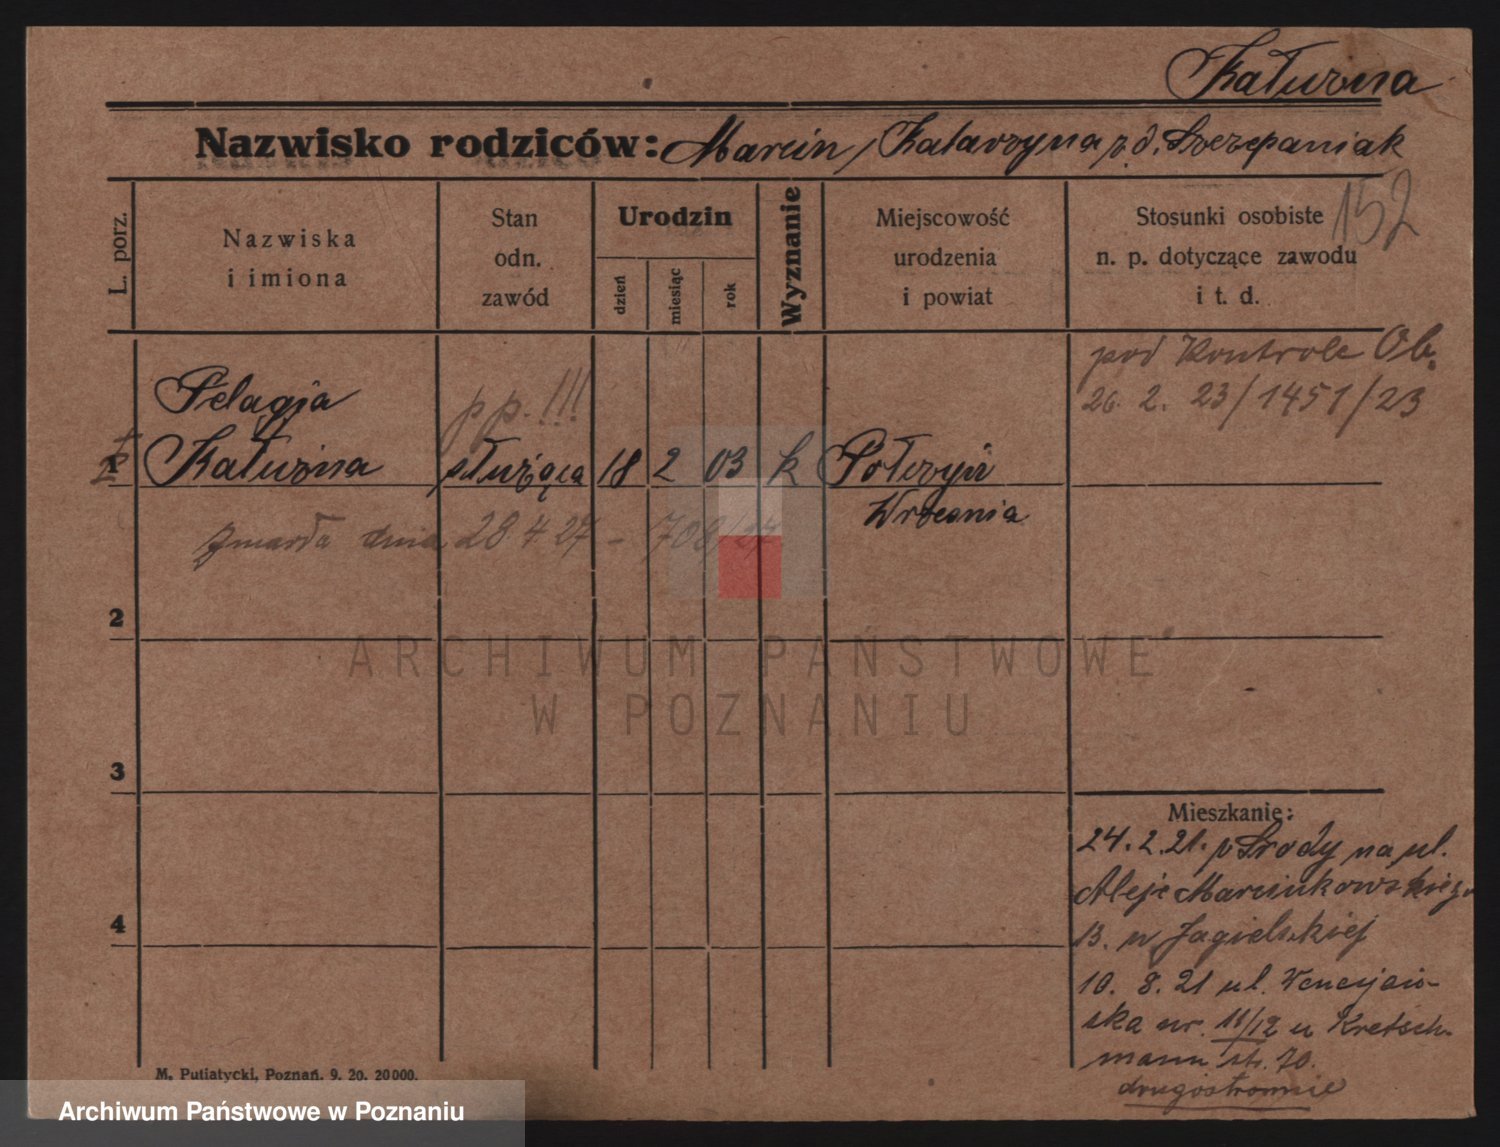 Kałuzna
Nazwisko rodziców: Marcin, Katarzyna z d. Szczepaniak
152
L. porz.
Nazwiska
i imiona
Stan
odn.
zawód
Urodzin
dzień
miesiąc
rok
Wyznanie
Miejscowość
urodzenia
i powiat
Stosunki osobiste
n. p. dotyczące zawodu
i t. d.
pod Kontrole Ob.
26. 2. 23/1451/23
Pelagja
pp. !!!
1
Kałuzna
służąca
18
2
03
k
Września
Zmarła dnia 28.4.27 - 708/27
2
ARCHIWUM PAŃSTWOWE
W POZNANIU
3
Mieszkanie:
24.2.21. z Środy na ul.
Aleje Marcinkowskiego
13. u Jagielskiej
10. 8. 21 ul. Wenecjań-
ska nr. 11/12 u Kretsch-
mann str. 70.
drugostronnie
4
M. Putiatycki, Poznań. 9. 20. 20000.
Archiwum Państwowe w Poznaniu